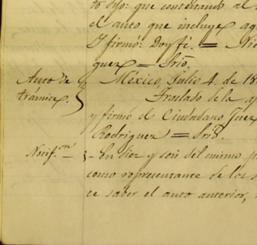 to dijo: que concediendo al
el auto que incluye aq
Y firmó: Doy fé. = 
guez = Srio.
Auto de
trámite.
México, Julio 4 de 18
Traslado de la
y firmó el Ciudadano Juez
Rodriguez = Srio.
Notif.on
En diez y seis del mismo p
como representante de los
ce saber el auto anterior,